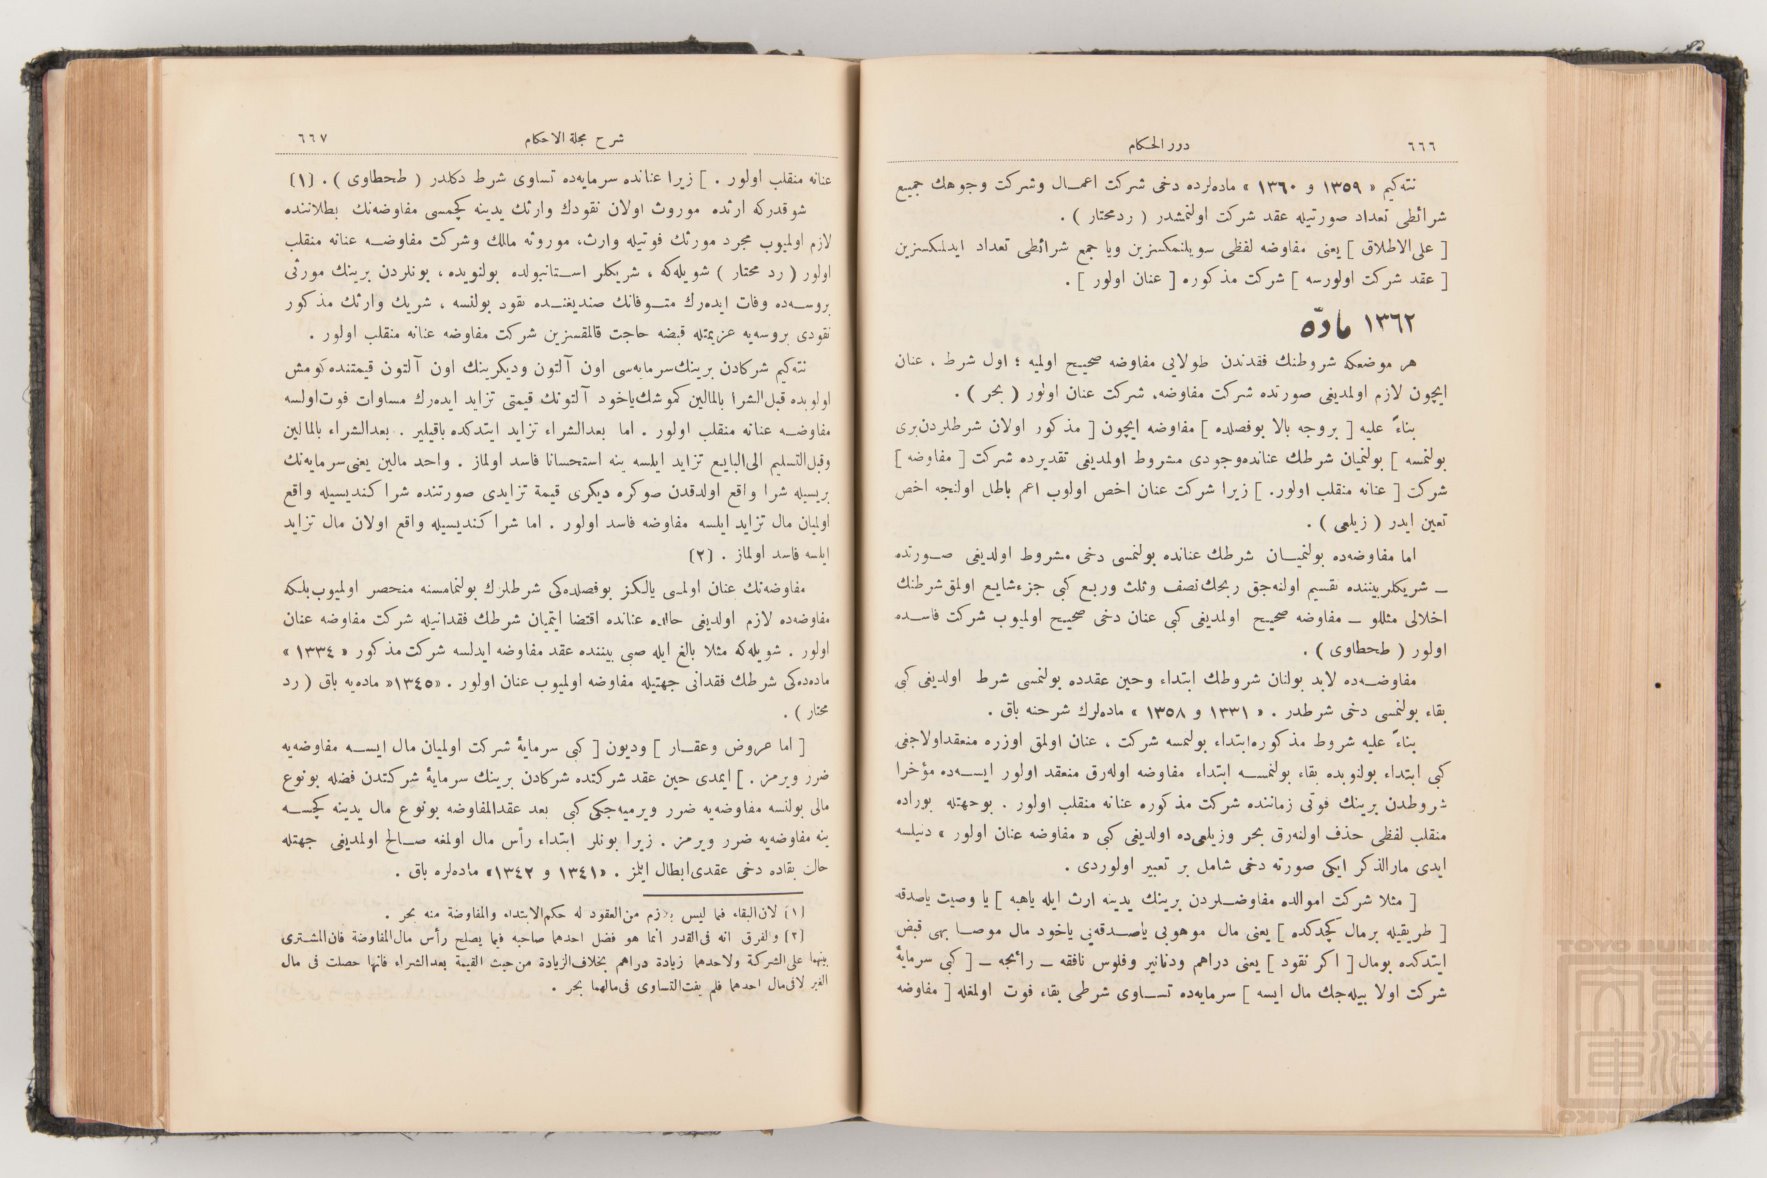 ٦٦٦
درر الحكام
نته‌كيم « ١٣٥٩ و ١٣٦٠ » ماده‌لرده دخى شركت اعمــال وشركت وجوهك جميع
شرائطى تعداد صورتيله عقد شركت اولنمشدر ( ردمحتار ) .
[ على‌الاطلاق ] يعنى مفاوضه لفظى سويلنمكسزين ويا جميع شرائطى تعداد ايدلمكسزين
[ عقد شركت اولورسه ] شركت مذكوره [ عنان اولور ] .
١٣٦٢ مادّه
هر موضعكه شروطنك فقدندن طولايى مفاوضه صحيح اولميه ؛ اول شرط ، عنان
ايچون لازم اولمديغى صورتده شركت مفاوضه، شركت عنان اولور ( بحر ) .
بناءً عليه [ بروجه بالا بوفصلده ] مفاوضه ايچون [ مذكور اولان شرطلردن‌برى
بولنمسه ] بولنميان شرطك عنانده‌وجودى مشروط اولمديغى تقديرده شركت [ مفاوضه ]
شركت [ عنانه منقلب اولور. ] زيرا شركت عنان اخص اولوب اعم باطل اولنجه اخص
تعين ايدر ( زيلعى ) .
اما مفاوضه‌ده بولنميــان شرطك عنانده بولنمسى دخى مشروط اولديغى صــورتده
ــ شريكلربيننده تقسيم اولنه‌جق ربحك‌نصف وثلث وربع كبى جزءشايع اولمق‌شرطنك
اخلالى مثللو ــ مفاوضه صحيح اولمديغى كبى عنان دخى صحيح اولميوب شركت فاســده
اولور ( طحطاوى ) .
مفاوضـه‌ده لابد بولنان شروطك ابتداء وحين عقدده بولنمسى شرط اولديغى كبى
بقاء بولنمسى دخى شرطدر . « ١٣٣١ و ١٣٥٨ » ماده‌لرك شرحنه باق .
بناءً عليه شروط مذكوره‌ابتداء بولنمسه شركت ، عنان اولمق اوزره منعقداولاجغى
كبى ابتداء بولنوبده بقاء بولنمســه ابتداء مفاوضه اوله‌رق منعقد اولور ايســه‌ده مؤخرا
شروطدن برينك فوتى زماننده شركت مذكوره عنانه منقلب اولور . بوجهتله بوراده
منقلب لفظى حذف اولنه‌رق بحر وزيلعى‌ده اولديغى كبى « مفاوضه عنان اولور » دنيلسه
ايدى مارالذكر ايكى صورته دخى شامل بر تعبير اولوردى .
[ مثلا شركت اموالده مفاوضــلردن برينك يدينه ارث ايله ياهبه ] يا وصيت ياصدقه
[ طريقيله برمال كچدكده ] يعنى مال موهوبى ياصــدقه‌يى ياخود مال موصــا بهى قبض
ايتدكده بومال [ اكر نقود ] يعنى دراهم ودنانير وفلوس نافقه ــ رائجه ــ [ كبى سرمايهٔ
شركت اولا بيله‌جك مال ايسه ] سرمايه‌ده تســاوى شرطى بقاء فوت اولمغله [ مفاوضه
شرح مجلة الاحكام
٦٦٧
عنانه منقلب اولور . ] زيرا عنانده سرمايه‌ده تساوى شرط دكلدر ( طحطاوى ) . [١]
شو قدركه ارثده موروث اولان نقودك وارثك يدينه كچمسى مفاوضه‌نك بطلاننده
لازم اولميوب مجرد مورثك فوتيله وارث، موروثه مالك وشركت مفاوضــه عنانه منقلب
اولور ( رد محتار ) شويله‌كه ، شريكلر اســتانبولده بولنوبده ، بونلردن برينك مورثى
بروســه‌ده وفات ايده‌رك متــوفانك صنديغنــده نقود بولنسه ، شريك وارثك مذكور
نقودى بروسه‌يه عزيمتله قبضه حاجت قالمقسزين شركت مفاوضه عنانه منقلب اولور .
نته‌كيم شركادن برينك‌سرمايه‌سى اون آلتون وديكرينك اون آلتون قيمتنده‌كومش
اولوبده قبل‌الشرا بالمالين كموشك‌ياخود آلتونك قيمتى تزايد ايده‌رك مساوات فوت‌اولسه
مفاوضــه عنانه منقلب اولور . اما بعدالشراء تزايد ايتدكده باقيلير . بعدالشراء بالمالين
وقبل‌التسليم الى‌البايع تزايد ايلسه ينه استحسانا فاسد اولماز . واحد مالين يعنى‌سرمايه‌نك
بريسيله شرا واقع اولدقدن صوكره ديكرى قيمة تزايدى صورتنده شرا كنديسيله واقع
اولميان مال تزايد ايلسه مفاوضه فاسد اولور . اما شرا كنديسيله واقع اولان مال تزايد
ايلسه فاسد اولماز . [٢]
مفاوضه‌نك عنان اولمسى يالكز بوفصلده‌كى شرطلرك بولنمامسنه منحصر اولميوب‌بلكه
مفاوضه‌ده لازم اولديغى حالده عنانده اقتضا ايتميان شرطك فقدانيله شركت مفاوضه عنان
اولور . شويله‌كه مثلا بالغ ايله صبى بيننده عقد مفاوضه ايدلسه شركت مذكور « ١٣٣٤ »
ماده‌ده‌كى شرطك فقدانى جهتيله مفاوضه اولميوب عنان اولور . «١٣٤٥» ماده‌يه باق ( رد
محتار ) .
[ اما عروض وعقــار ] وديون [ كبى سرمايهٔ شركت اولميان مال ايســه مفاوضه‌يه
ضرر ويرمز . ] ايمدى حين عقد شركتده شركادن برينك سرمايهٔ شركتدن فضله بونوع
مالى بولنسه مفاوضه‌يه ضرر ويرميه‌جكى كبى بعد عقدالمفاوضه بونوع مال يدينه كچســه
ينه مفاوضه‌يه ضرر ويرمز . زيرا بونلر ابتداء رأس مال اولمغه صــالح اولمديغى جهتله
حال بقاده دخى عقدى‌ابطال ايلمز . «١٣٤١ و ١٣٤٢» ماده‌لره باق .
[١] لان‌البقاء فيما ليس بلازم من‌العقود له حكم‌الابتداء والمفاوضة منه بحر .
[٢] والفرق انه فى‌القدر انما هو فضل احدهما صاحبه فيما يصلح رأس مال‌المفاوضة فان‌المشترى
بينهما على‌الشركة ولاحدهما زيادة دراهم بخلاف‌الزيادة من‌حيث القيمة بعدالشراء فانها حصلت فى مال
الغير لافى‌مال احدهما فلم يفت‌التساوى فى‌مالهما بحر .
TOYO BUNKO